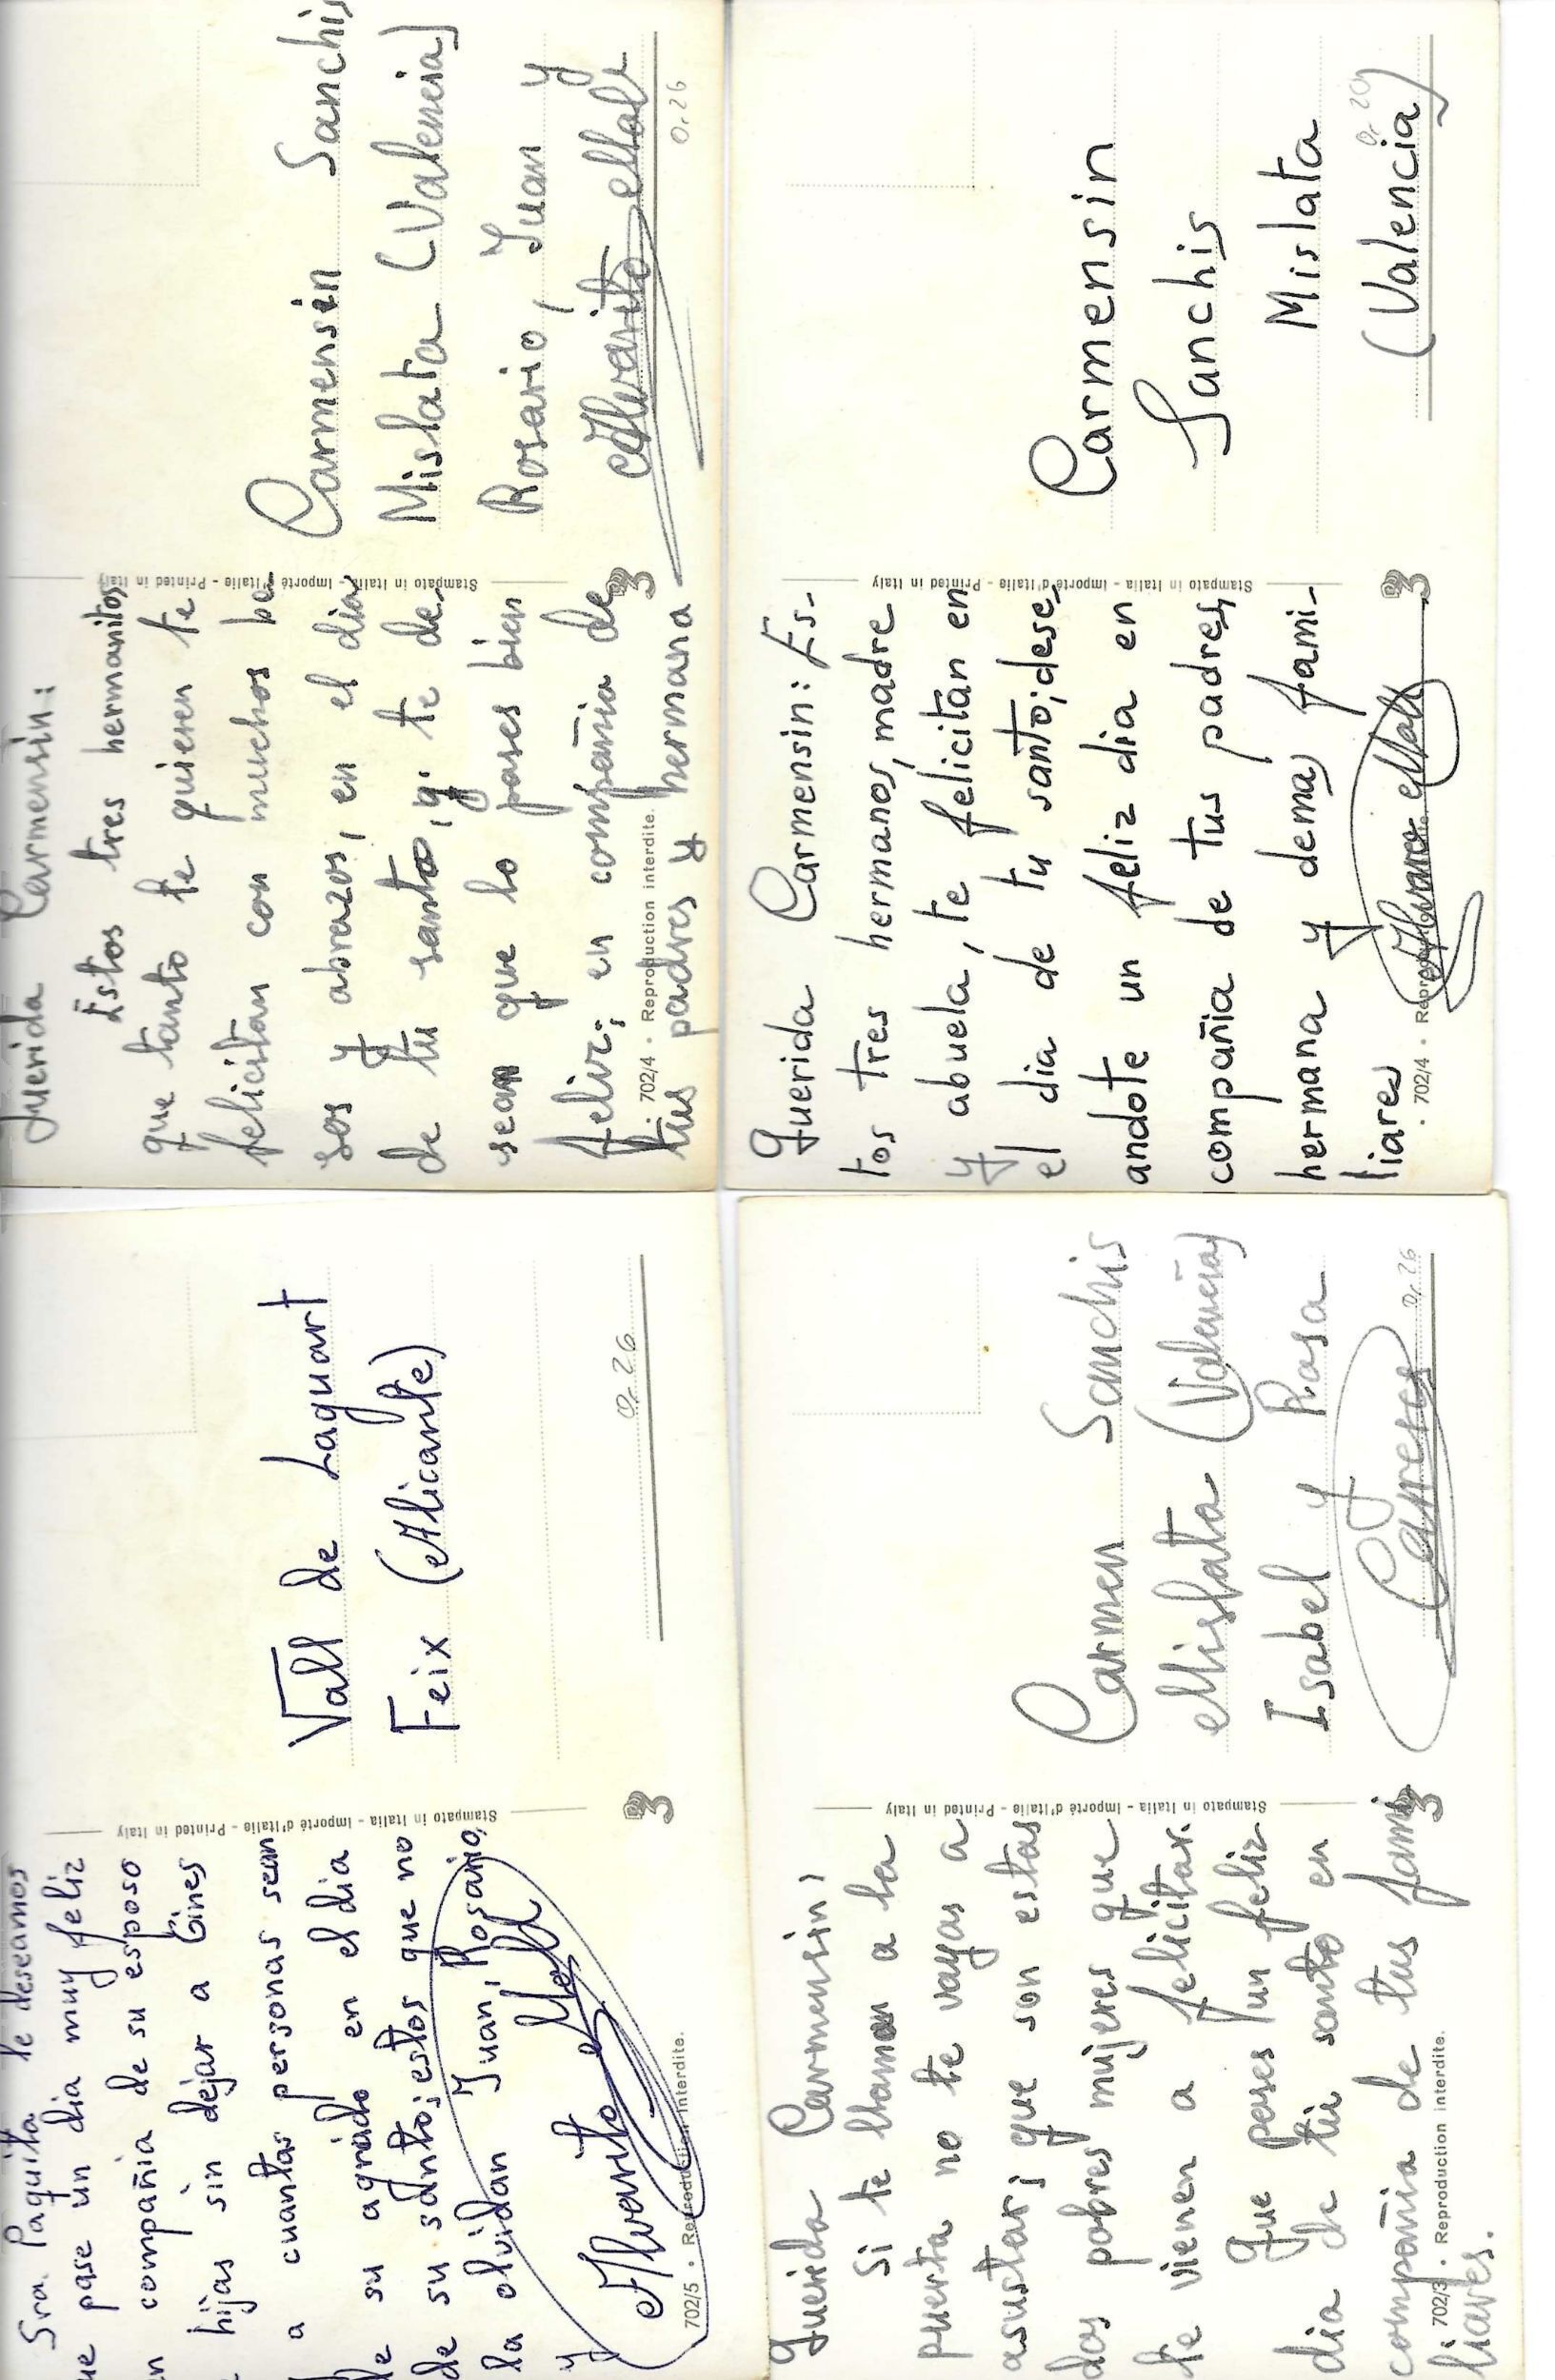 Sra. Paquita le deseamos
pase un dia muy feliz
compañia de su esposo
hijas sin dejar a Gines
a cuantas personas sean
de su agrado en el dia
de su santo; estos que no
la olvidan Juan, Rosario,
y
Alvarito
702/5 · Reproduction interdite.
Stampato in Italia - Importé d'Italie - Printed in Italy
Vall de Laguart
Feix (Alicante)
0,26
Querida Carmensin:
Estos tres hermanitos
que tanto te quieren te
felicitan con muchos be
sos y abrazos, en el dia
de tu santo, y te de-
sean que lo pases bien
feliz; en compañia de
tus padres y hermana
702/4 · Reproduction interdite.
Stampato in Italia - Importé d'Italie - Printed in Italy
Carmensin Sanchis
Mislata (Valencia)
Rosario, Juan y
Alvarito
0,26
Querida Carmensin;
Si te llaman a la
puerta no te vayas a
asustar; que son estas
dos pobres mujeres que
te vienen a felicitar.
Que pases un feliz
dia de tu santo en
compañia de tus fami
liares.
702/3 · Reproduction interdite.
Stampato in Italia - Importé d'Italie - Printed in Italy
Carmen Sanchis
Mislata (Valencia)
Isabel y Rosa
0,26
Querida Carmensin: Es-
tos tres hermanos, madre
y abuela, te felicitan en
el dia de tu santo; dese
andote un feliz dia en
compañia de tus padres,
hermana y demas fami-
liares
702/4 ·
Stampato in Italia - Importé d'Italie - Printed in Italy
Carmensin
Sanchis
Mislata
(Valencia)